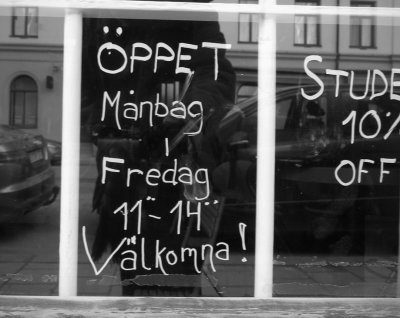 ÖPPET
Månbag
ı
Fredag
11¨- 14¨
Välkomna!
STUDE
10%
OFF